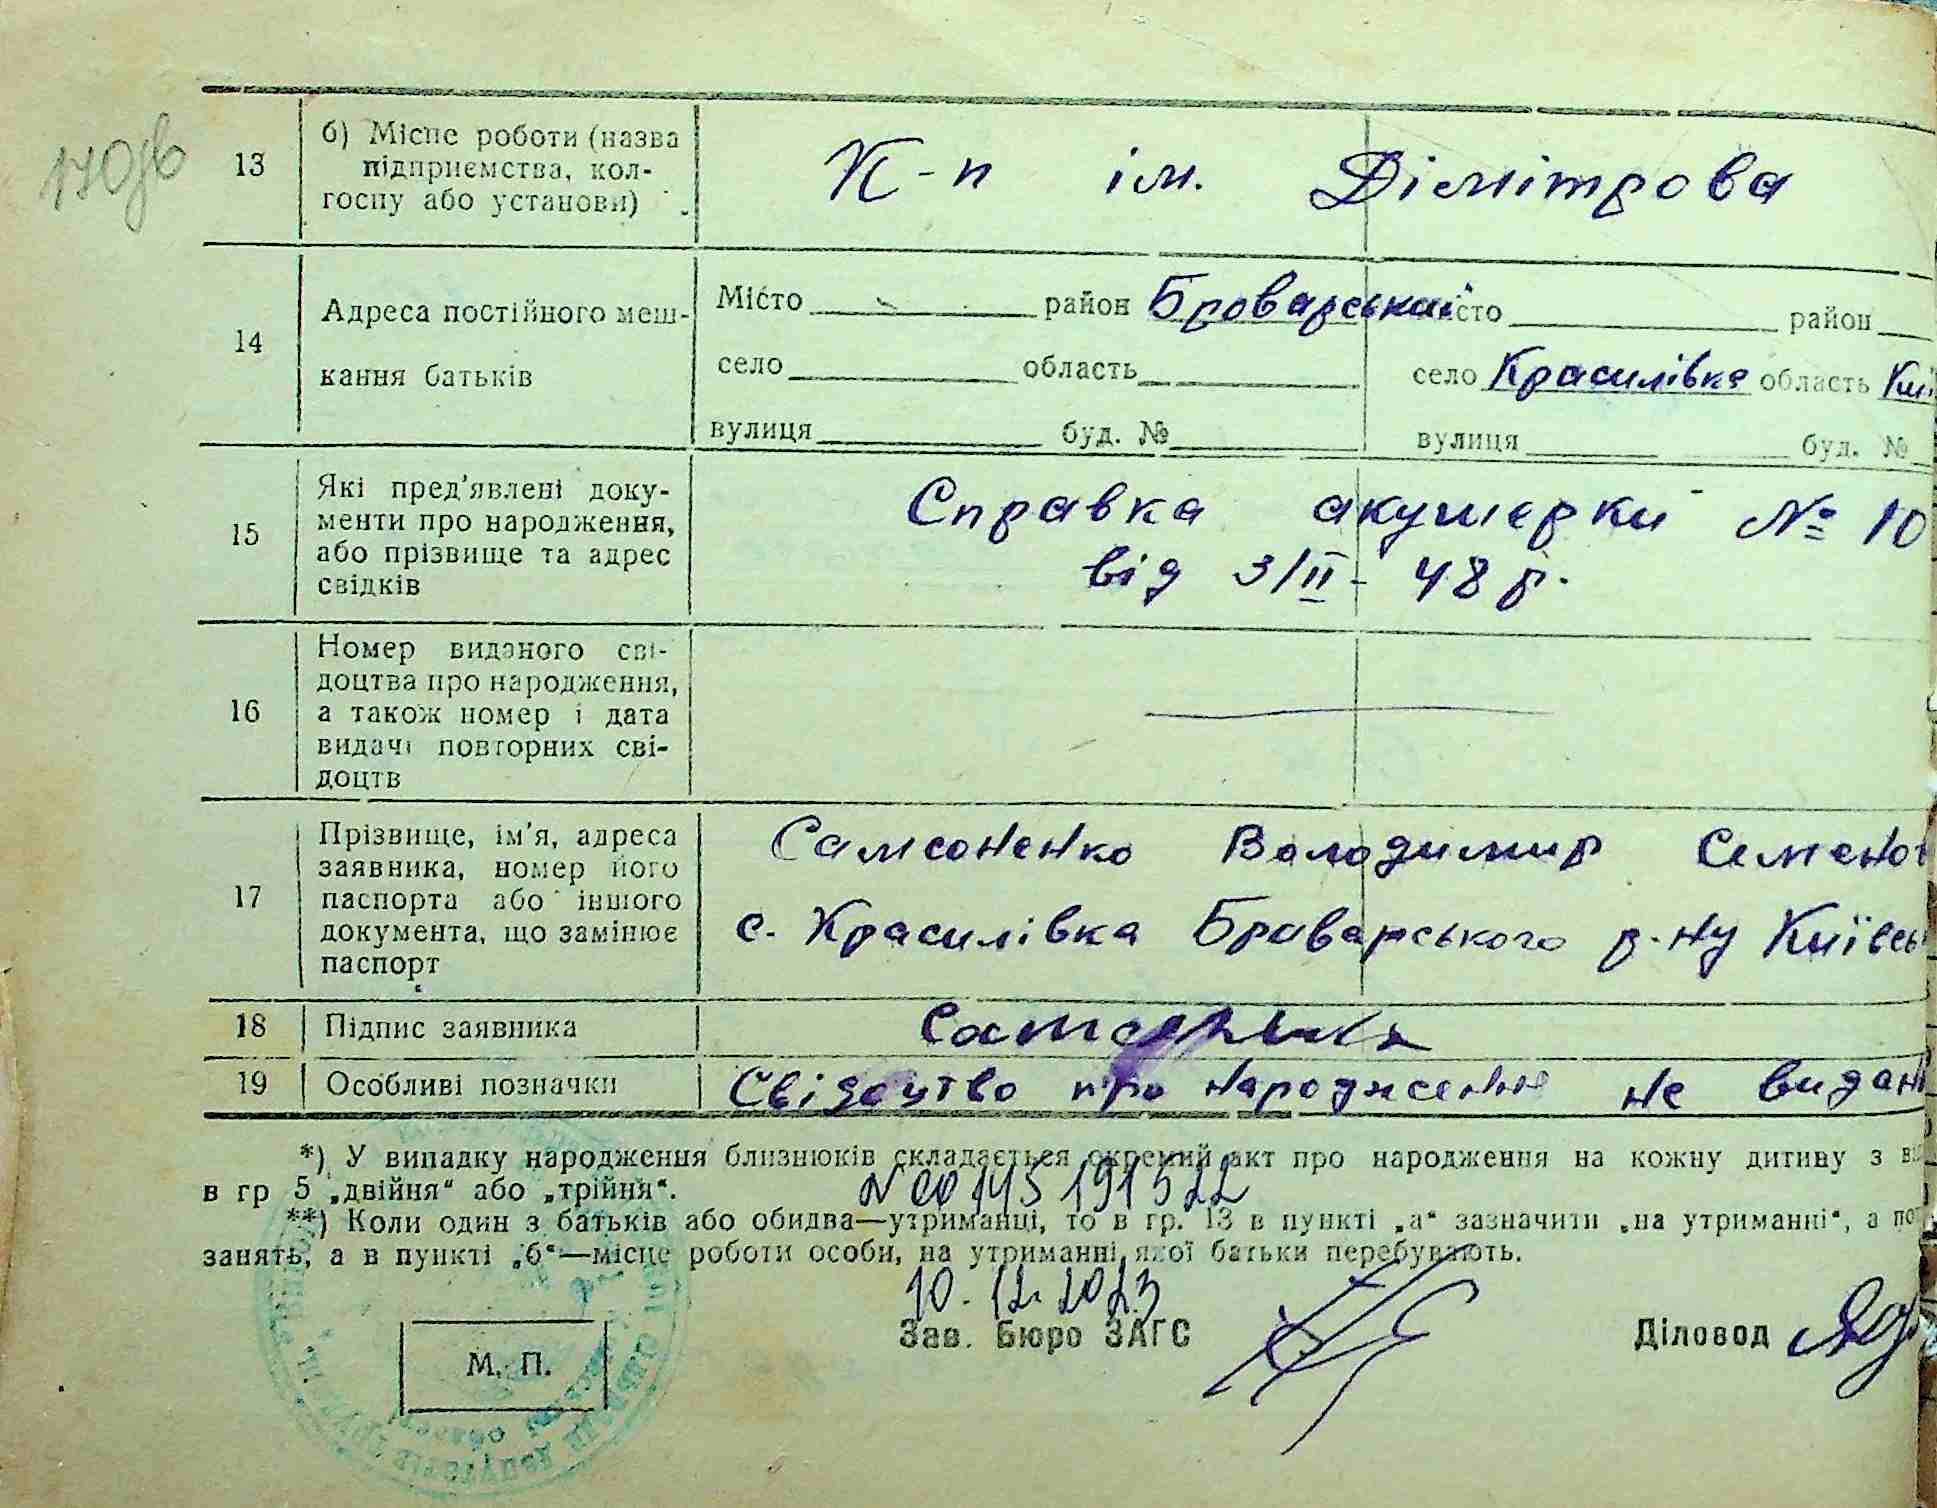 170зв
13 б) Місце роботи (назва
підприємства, кол-
госпу або установи)
К-п ім. Дімітрова
14 Адреса постійного меш-
кання батьків
Місто район Броварський місто район
село область село Красилівка область Киї
вулиця буд. № вулиця буд. №
15 Які пред'явлені доку-
менти про народження,
або прізвище та адрес
свідків
Справка акушерки № 10
від 3/ІІ - 48 р.
16 Номер виданого сві-
доцтва про народження,
а також номер і дата
видачі повторних сві-
доцтв
17 Прізвище, ім'я, адреса
заявника, номер його
паспорта або іншого
документа, що замінює
паспорт
Самсоненко Володимир Семенов
с. Красилівка Броварського р-ну Київсь
18 Підпис заявника
19 Особливі позначки Свідоцтво про народження не видан
*) У випадку народження близнюків складається окремий акт про народження на кожну дитину з
в гр 5 „двійня“ або „трійня“.
**) Коли один з батьків або обидва—утриманці, то в гр. 13 в пункті „а“ зазначити „на утриманні“, а
занять, а в пункті „б“—місце роботи особи, на утриманні якої батьки перебувають.
10.12.2023
Зав. Бюро ЗАГС Діловод
М. П.